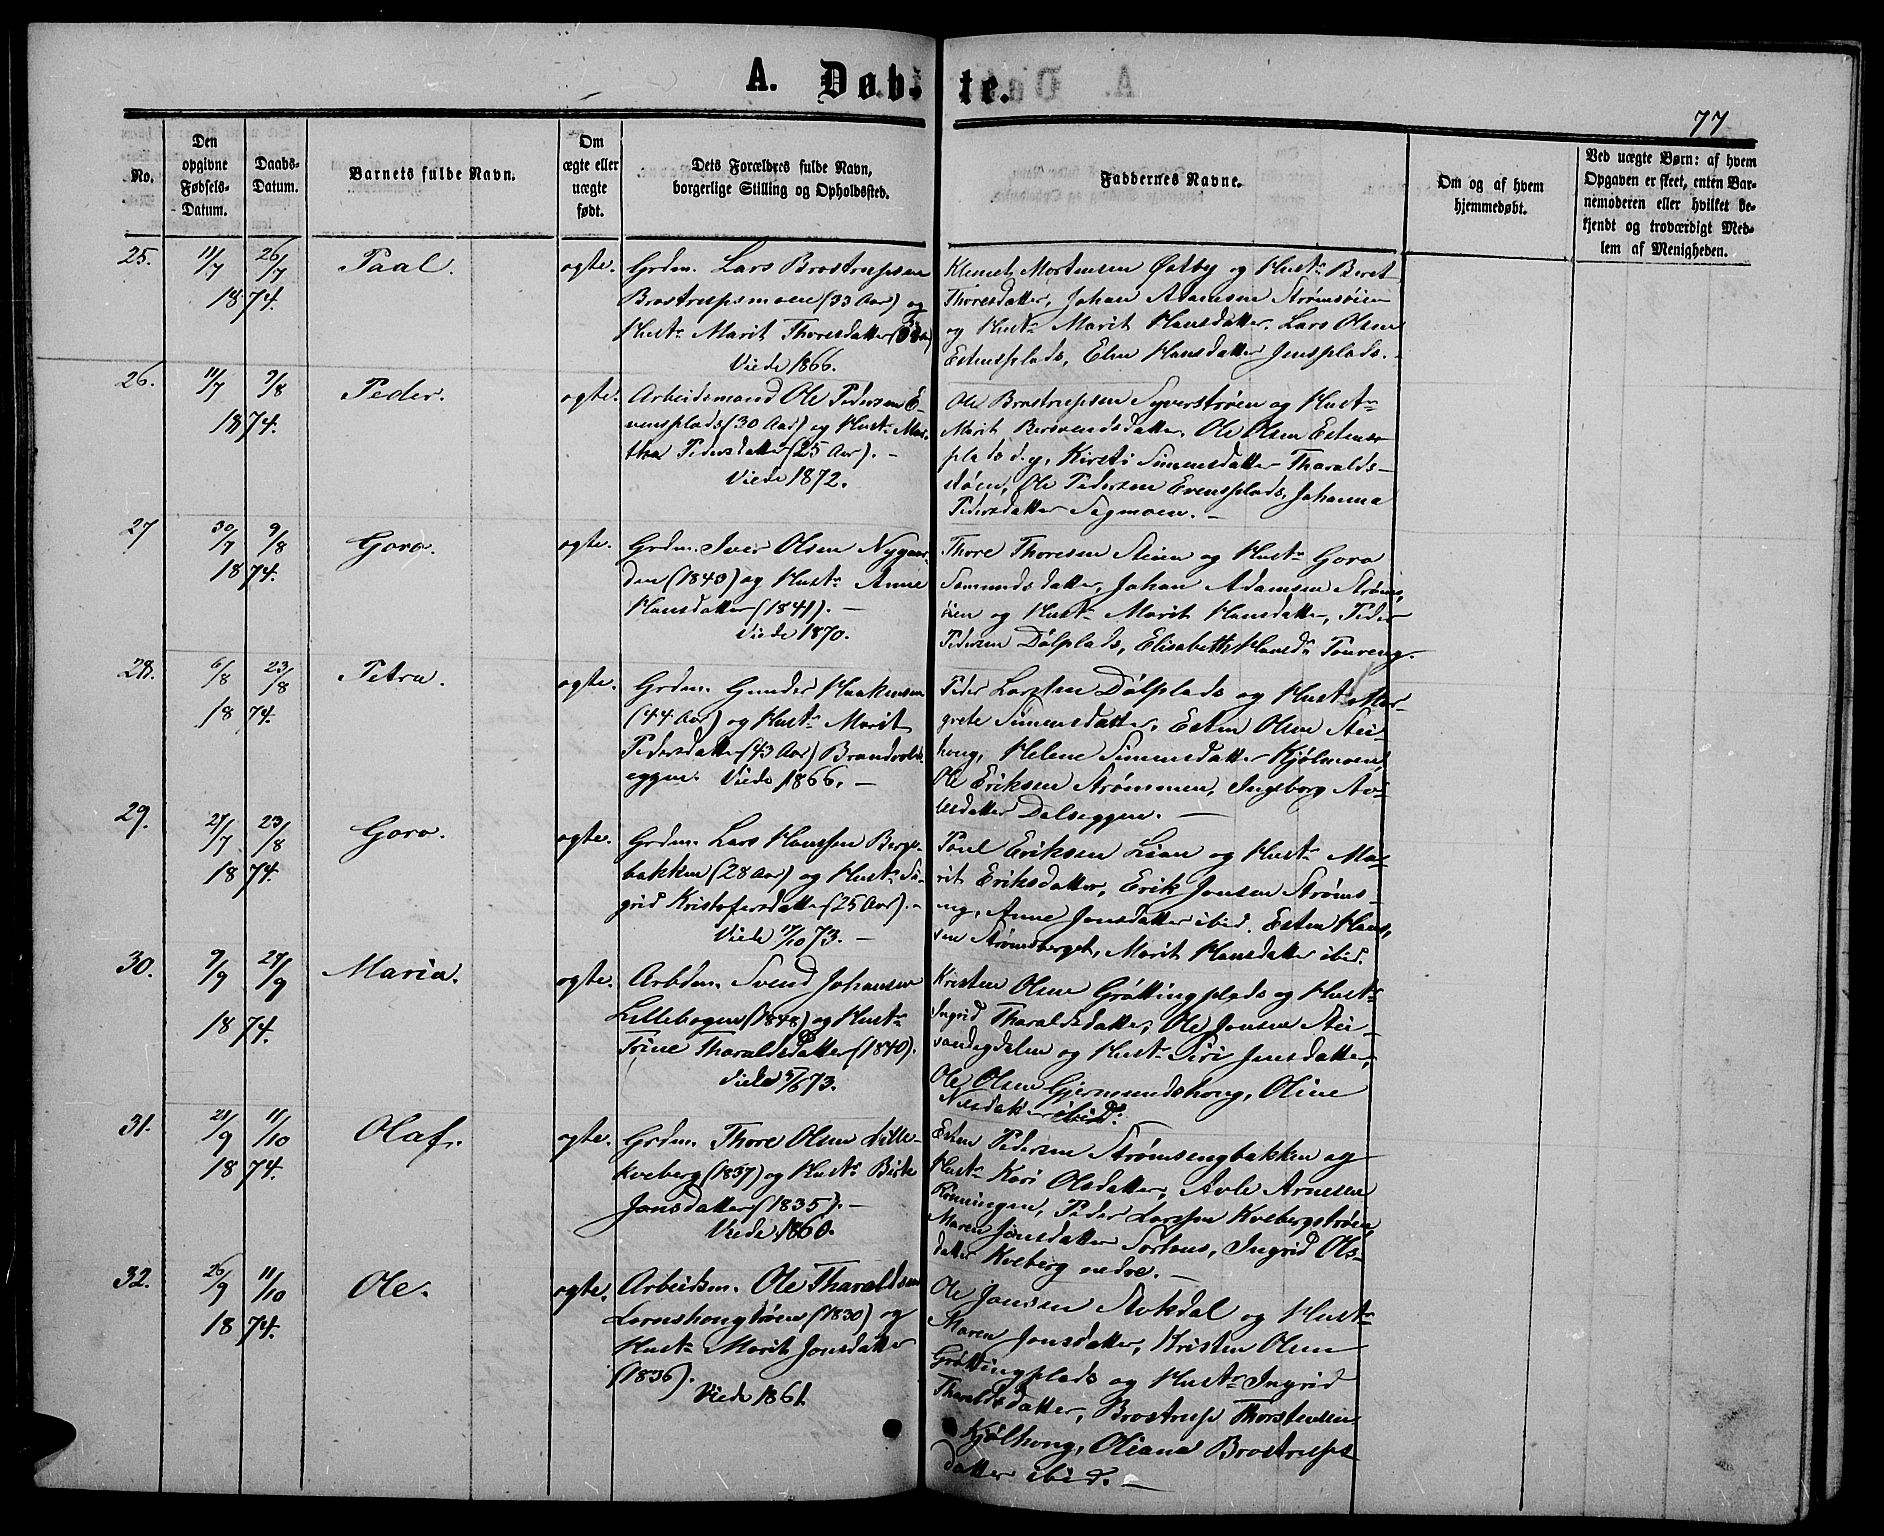 A. Døbte.
77
No.
Den opgivne Fødsels-Datum.
Daabs-Datum.
Barnets fulde Navn.
Om ægte eller uægte født.
Dets Forældres fulde Navn, borgerlige Stilling og Opholdssted.
Faddernes Navne.
Om og af hvem hjemmedøbt.
Ved uægte Børn: af hvem Opgaven er skeet, enten Barnemoderen eller hvilket bekjendt og troværdigt Medlem af Menigheden.
25. 11/7 1874. 26/7 Paal. ægte.
Grdm. Lars Brostrupsen
Brostrupsmoen (33 Aar) og
Hustr. Marit Thoresdatter
Viede 1866.
Klemet Mortensen Østby og Hustr. Beret
Thoresdatter, Johan Adamsen Strømsøien
og Hustr. Marit Hansdatter. Lars Olsen
Estensplads, Elen Hansdatter Jensplads.
26. 11/7 1874. 9/8 Peder. ægte.
Arbeidsmand Ole Pedersen E-
vensplads (30 Aar) og Hustr. Mar-
tha Pedersdatter (25 Aar). –
Viede 1872.
Ole Brostrupsen Syverstrøen og Hustr.
Marit Bersvendsdatter, Ole Olsen Estens-
plads d.y, Kirsti Simensdatter Tharalds-
støen, Ole Pedersen Evensplads, Johanna
Pedersdatter Sagmoen. –
27 30/7 1874. 9/8 Goro. ægte.
Grdm. Iver Olsen Nygaar-
den (1843) og Hustr. Anne
Hansdatter (1841). –
Viede 1870.
Thore Thoresen Steien og Hustr. Goro
Simensdatter, Johan Adamsen Strøms-
øien og Hustr. Marit Hansdatter, Peder
Pedersen Dølplads, Elisabeth Hansdr.
28. 6/8 1874. 23/8 Petra. ægte.
Grdm. Gunder Haakensen
(44 Aar) og Hustr. Marit
Pedersdatter (43 Aar) Brandvolds-
eggen. Viede 1866. –
Peder Larsen Dølplads og Hustr. Mar-
grete Simensdatter. Esten Olsen Stei-
houg, Helene Simensdatter Kjølmoen,
Ole Eriksen Strømmen, Ingeborg Av-
lesdatter Dalseggen. –
29. 27/7 1874. 23/8 Goro. ægte.
Grdm. Lars Hanssen Bergs-
bakken (28 Aar) og Hustr. Si-
grid Kristofersdatter (25 Aar). –
Viede 17/10 73. –
Poul Eriksen Lian og Hustr. Ma-
rit Eriksdatter, Erik Jonsen Strøms-
eng, Anne Jonsdatter ibid. Esten Hans-
sen Strømsberget, Marit Hansdatter ibid.
30. 9/9 1874. 27/9 Maria. ægte.
Arbdm. Svend Johansen
Lillebogen (1848) og Hustr.
Trine Tharaldsdatter (1840).
Viede 5/6 73.
Kristen Olsen Grøttingplads og Hustr.
Ingrid Tharaldsdatter, Ole Jonsen Stei-
sandegdalen og Hustr. Siri Jonsdatter,
Ole Olsen Gjermundshoug, Oline
Nilsdatter ibid.
31. 21/9 1874. 11/10 Olaf. ægte.
Grdm. Thore Olsen Lille-
kveberg (1837) og Hustr. Birte
Jonsdatter (1835). –
Viede 1860.
Esten Pedersen Strømsengbakken og
Hustr. Kari Olsdatter, Avle Arnesen
Rønningen, Peder Larssen Kvebergstrøen,
Maren Jonsdatter Sorhus, Ingrid Ols-
datter Kveberg nedre. –
32. 26/9 1874. 11/10 Ole. ægte.
Arbeidsm. Ole Tharaldsen
Lornshougtrøen (1830) og
Hustr. Marit Jonsdatter
(1836).
Viede 1861.
Ole Jonsen Stokdal og Hustr.
Maren Jonsdatter, Kristen Olsen
Grøttingplads og Hustr. Ingrid
Tharaldsdatter, Brostrup Thorstensen
Kjølhoug, Oliana Brostrups-
datter ibid. –